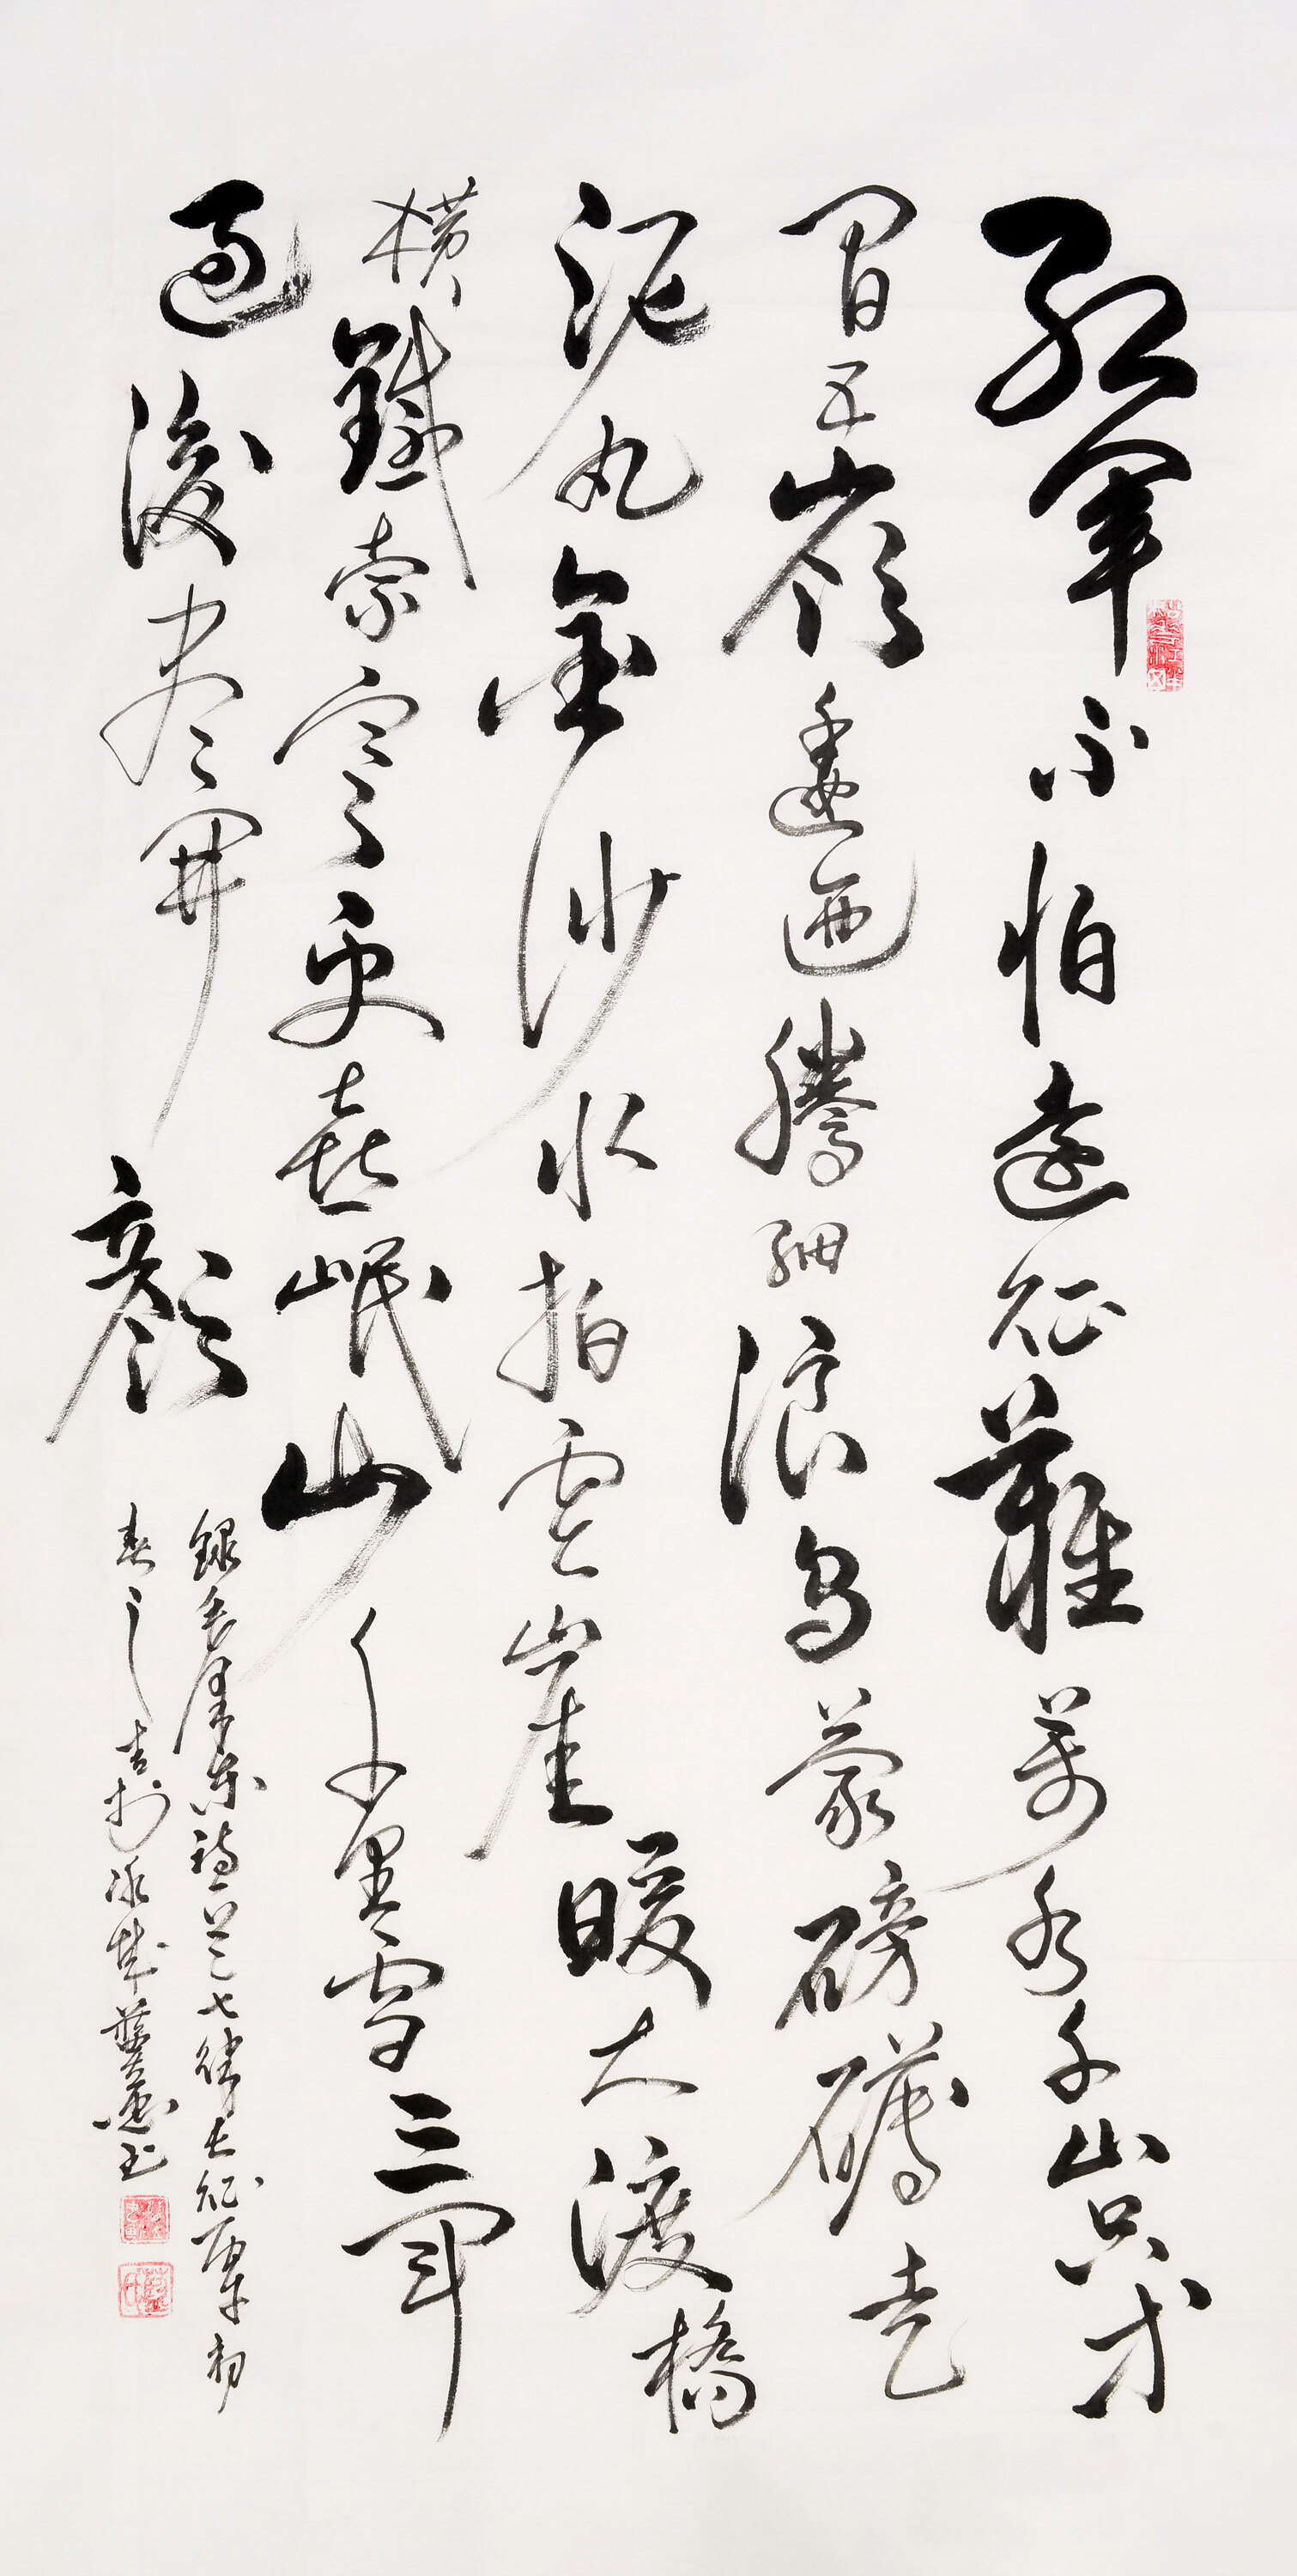 紅軍不怕遠征難萬水千山只等
間五嶺逶迤騰細浪烏蒙磅礴走
泥丸金沙水拍雲崖暖大渡橋
橫鐵索寒更喜岷山千里雪三軍
過後盡開顏
錄毛澤東詩七律長征初
春之吉於冰城